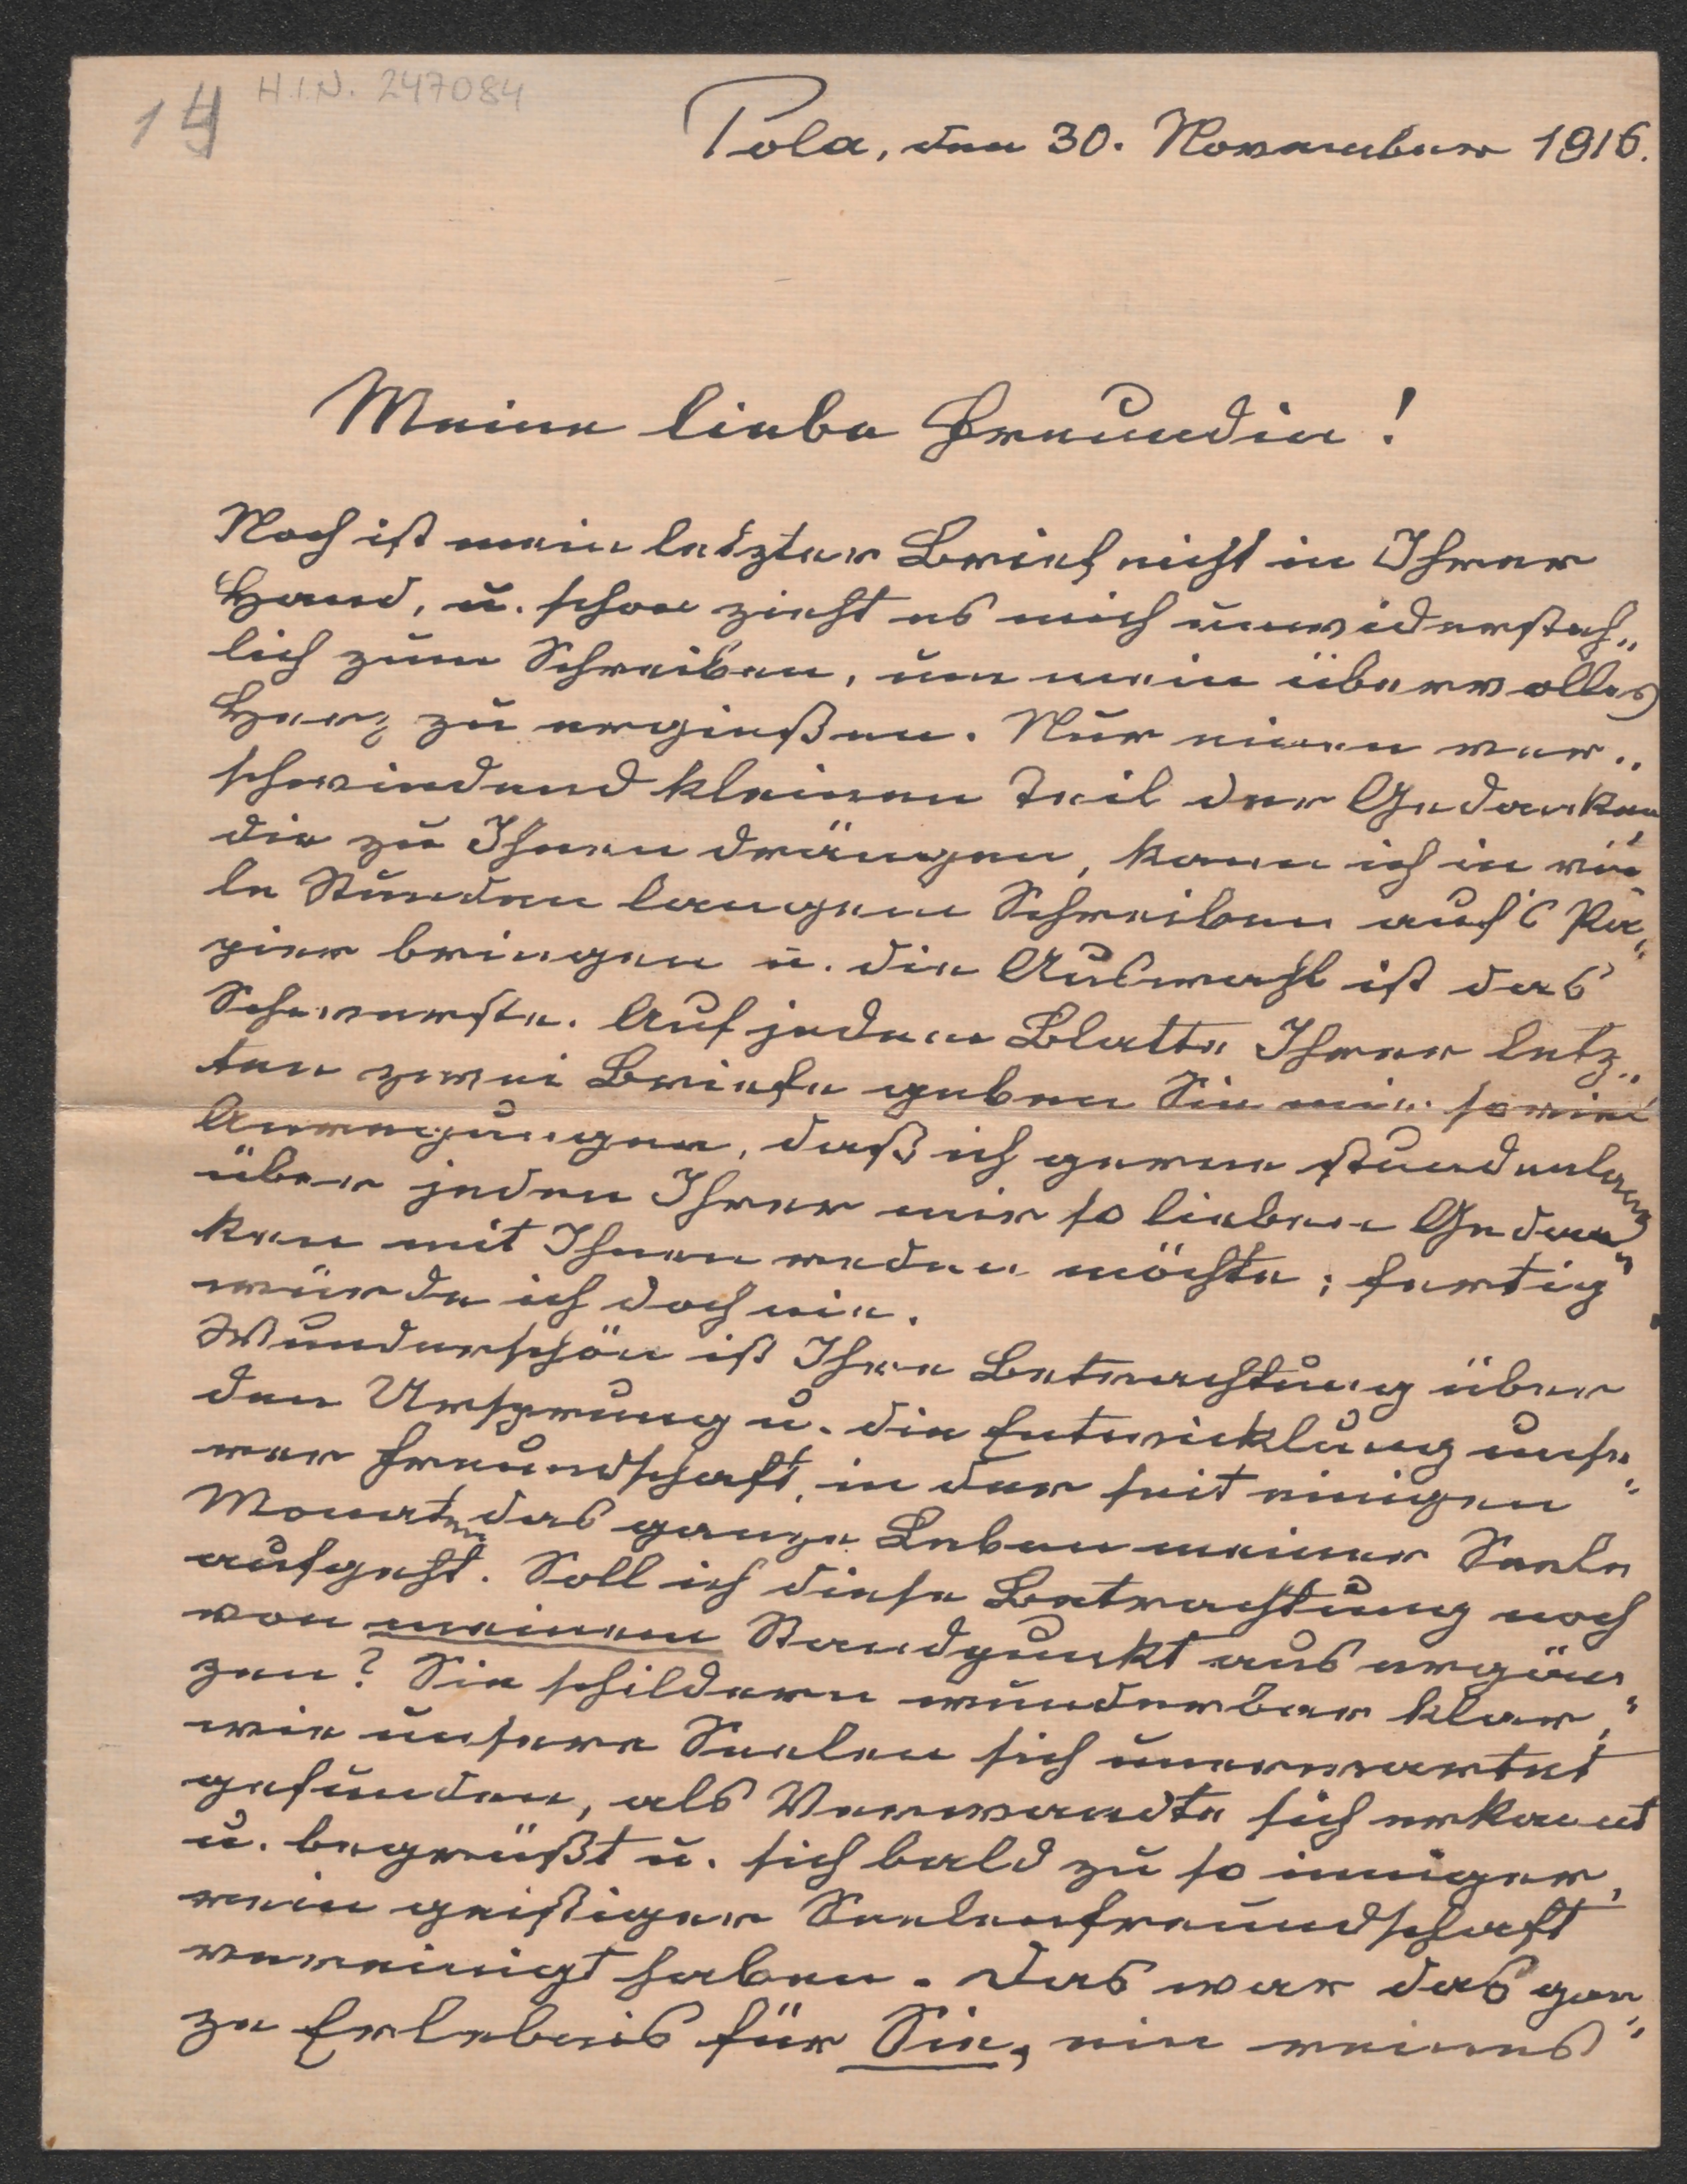 14 H.I.N. 247084
Pola, den 30. November 1916.
Meine liebe Freundin!
Noch ist mein letzter Brief nicht in Ihrer
Hand, u. schon zieht es mich unwidersteh„
lich zum Schreiben, um mein übervolles
Herz zu ergießen. Nur einen ver„
schwindend kleinen Teil der Gedanken
die zu Ihnen drängen, kann ich in vie
le Stunden langem Schreiben auf's Pa„
pier bringen u. die Auswahl ist das
Schwerste. Auf jedem Blatte Ihrer letz„
ten zwei Briefe geben Sie mir soviel
Anregungen, daß ich gerne stundenlang
über jeden Ihrer mir so lieben Gedan„
ken mit Ihnen reden möchte; fertig
würde ich doch nie.
Wunderschön ist Ihre Betrachtung über
den Ursprung u. die Entwicklung unse„
rer Freundschaft, in der seit einigen
Monaten das ganze Leben meiner Seele
aufgeht. Soll ich diese Betrachtung noch
von meinem Standpunkt aus ergän„
zen? Sie schildern wunderbar klar,
wie unsere Seelen sich unerwartet
gefunden, als Verwandte sich erkannt
u. begrüßt u. sich bald zu so inniger,
rein geistiger Seelenfreundschaft
vereinigt haben. Das war das gan„
ze Erlebnis für Sie, ein reines